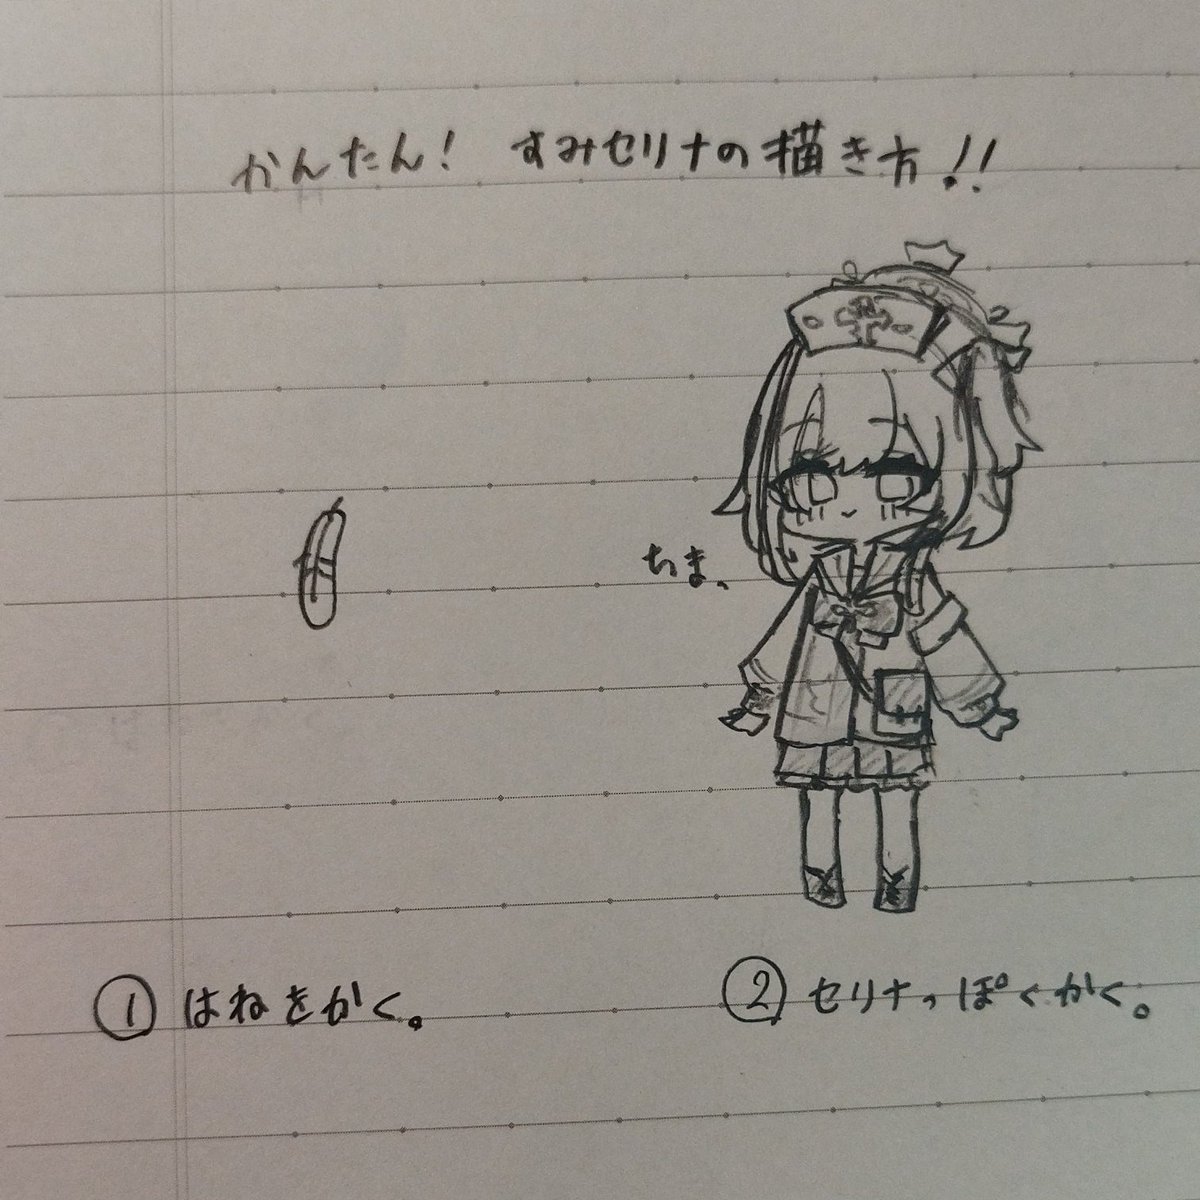 かんたん! すみセリナの描き方!!
ちま、
① はねをかく。
② セリナっぽくかく。